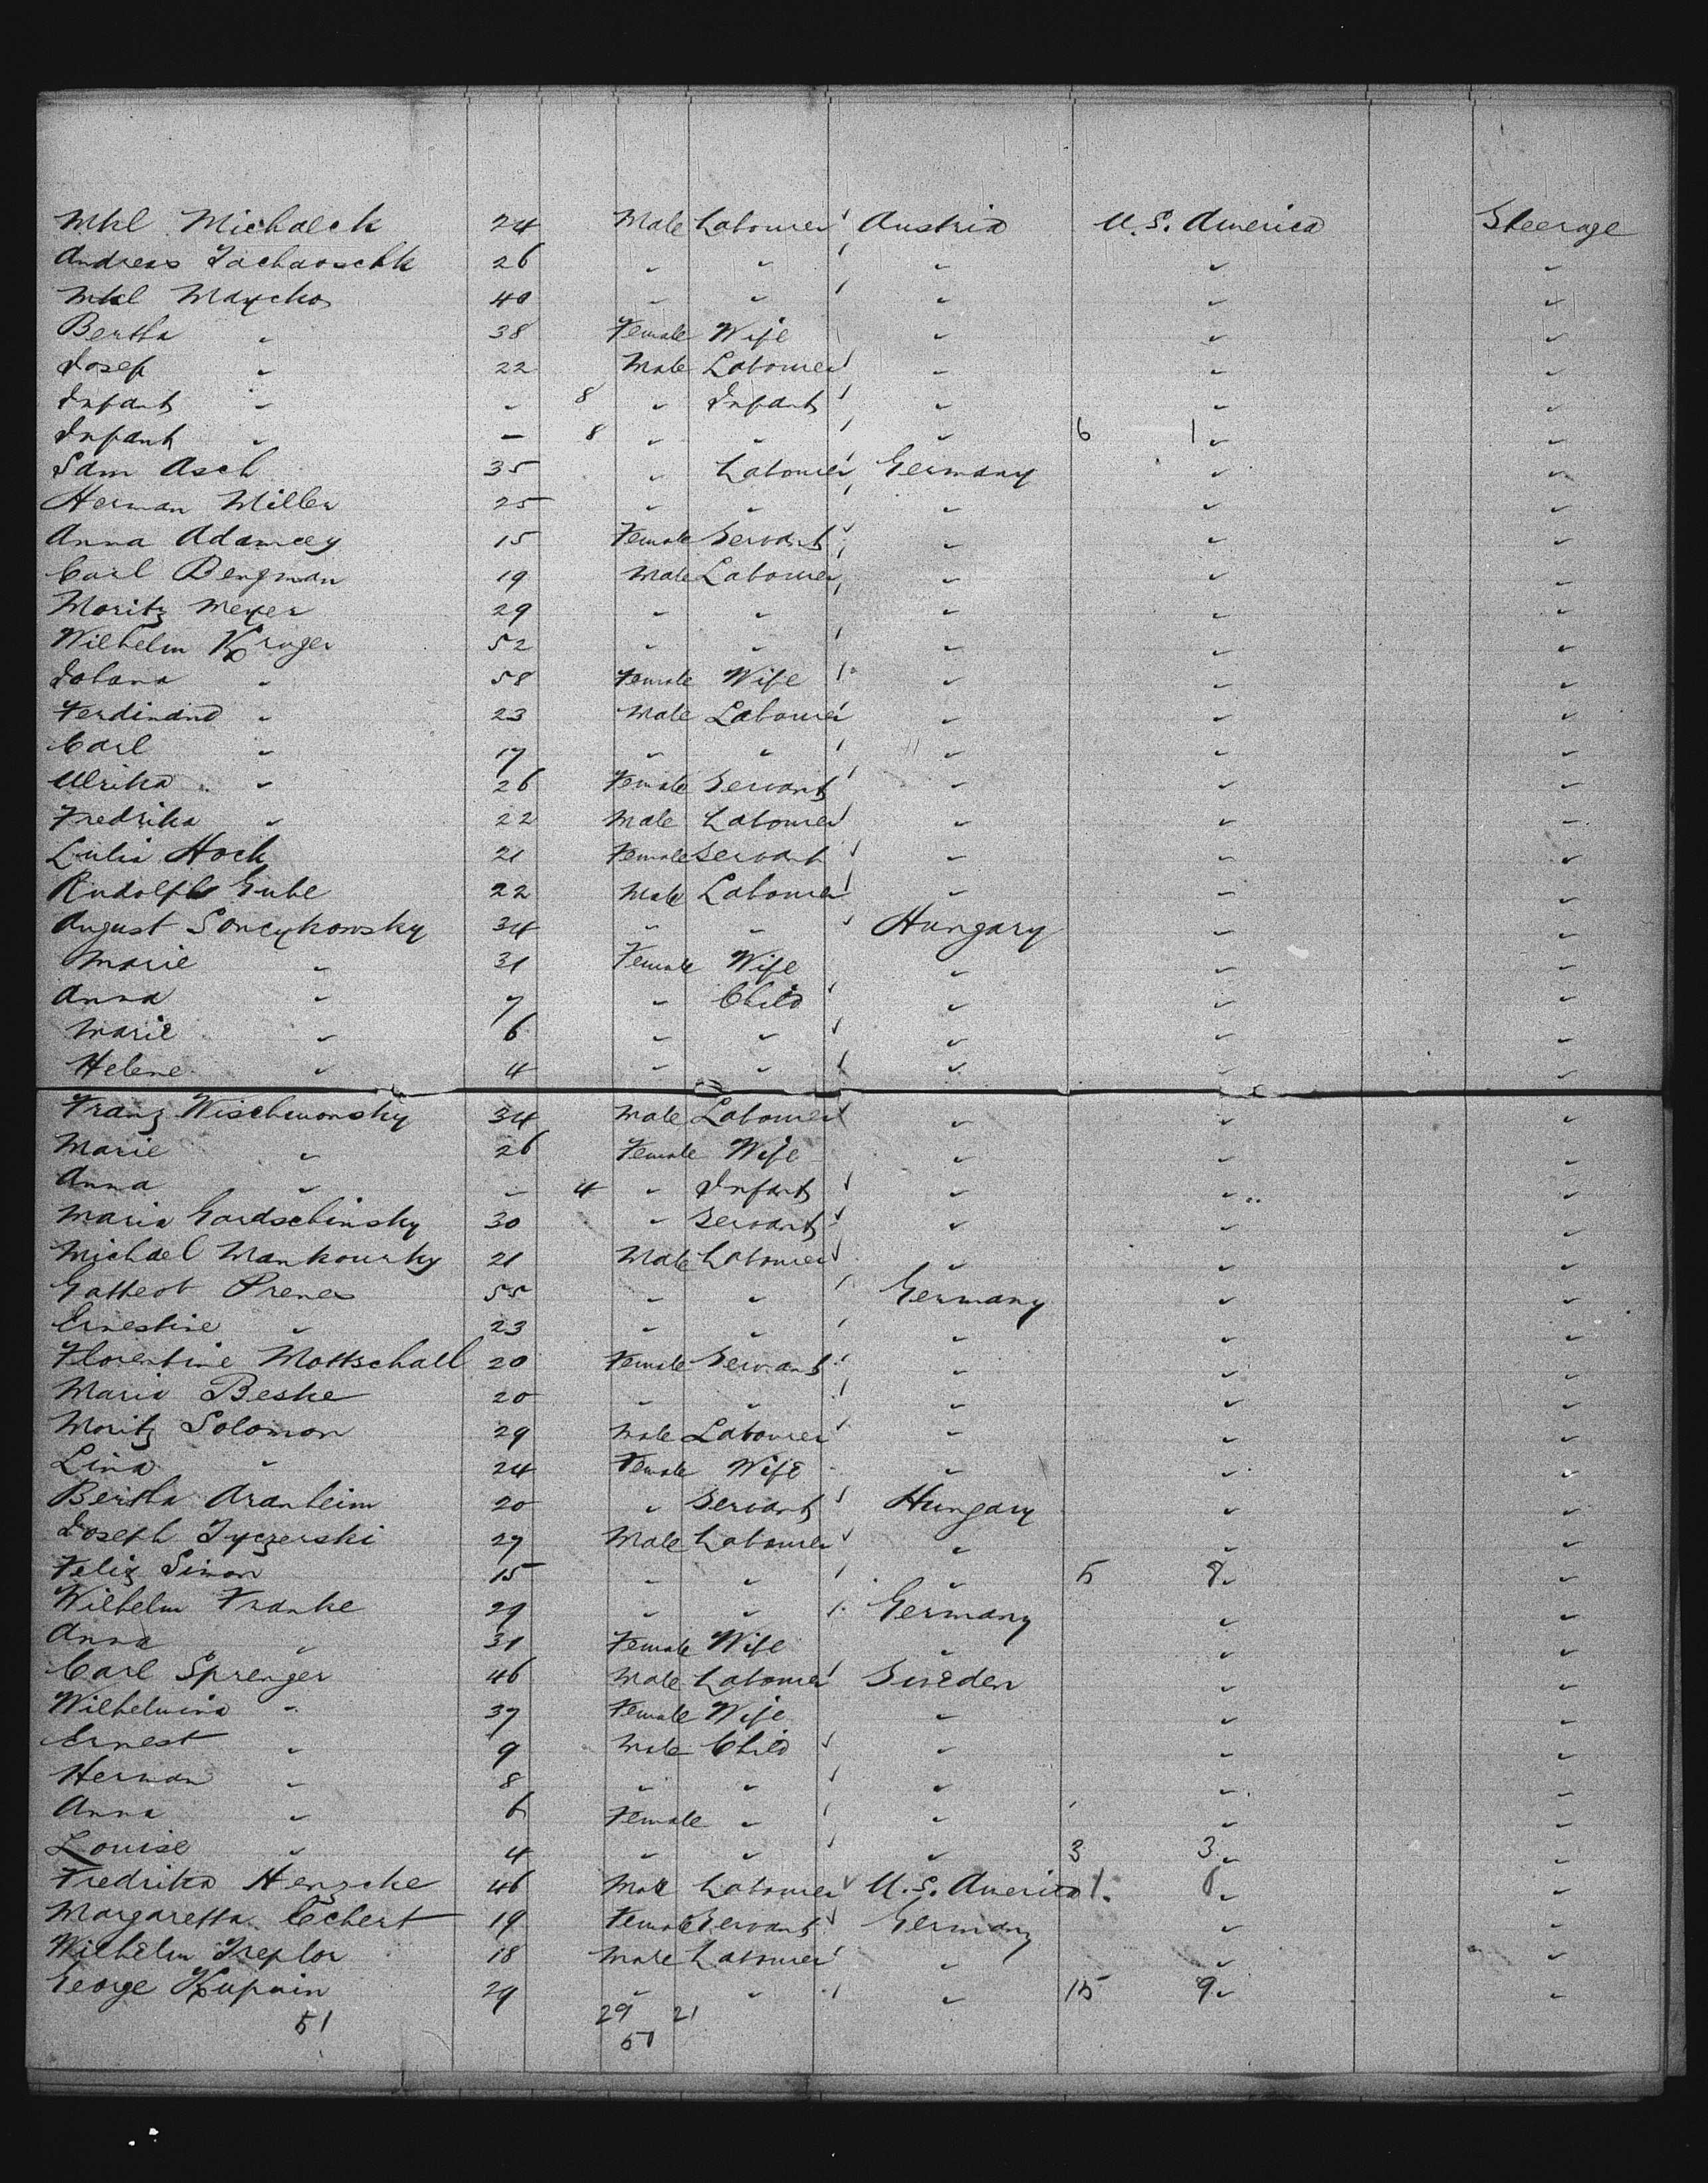 Mkl Michaleck 24 Male Labourer Austria U.S. America Steerage
Andreas 26 " " " " "
Mkl Maycho 40 " " " " "
Bertha " 38 Female Wife " " "
Josef " 22 Male Labourer " " "
Infant " " 8 " Infant " " "
Infant " — 8 " " " 6 1 " "
Sam Asch 35 " Labourer Germany " "
Herman Miller 25 " " " " "
Anna Adamcey 15 Female Servant " " "
Carl Bengman 19 Male Labourer " " "
Moritz Meyer 29 " " " " "
Wilhelm Kruger 52 " " " " "
Johana " 58 Female Wife " " "
Ferdinand " 23 Male Labourer " " "
Carl " 17 " " " " "
Ulrika " 26 Female Servant " " "
Fredrika " 22 Male Labourer " " "
Julia Hock 21 Female Servant " " "
Rudolph Gube 22 Male Labourer " " "
August Soncykowsky 34 " " Hungary " "
Marie " 31 Female Wife " " "
Anna " 7 " Child " " "
Marie " 6 " " " " "
Helene " 4 " " " " "
Franz Wischwonsky 34 Male Labourer " " "
Marie " 26 Female Wife " " "
Anna " " 4 " Infant " " "
Maria Gordschinsky 30 " Servant " " "
Michael Mankowsky 21 Male Labourer " " "
Gatteob Prenes 55 " " Germany " "
Ernestine " 23 " " " " "
Florentine Mottschall 20 Female Servant " " "
Maria Beske 20 " " " " "
Moritz Solomon 29 Male Labourer " " "
Lina " 24 Female Wife " " "
Bertha Aranheim 20 " Servant Hungary " "
Joseph Tyczerski 27 Male Labourer " " "
Felix Simon 15 " " " 5 8 " "
Wilhelm Franke 29 " " Germany " "
Anna " 31 Female Wife " " "
Carl Sprenger 46 Male Labourer Sweden " "
Wilhelmina " 37 Female Wife " " "
Ernest " 9 Male Child " " "
Herman " 8 " " " " "
Anna " 6 Female " " " "
Louise " 4 " " " 3 3 " "
Fredrika Henzcke 46 Male Labourer U.S. America 1 " "
Margaretta Eckert 19 Female Servant Germany " "
Wilhelm Treplor 18 Male Labourer " " "
George Kupain 29 " " " 15 9 " "
51 29 21
50